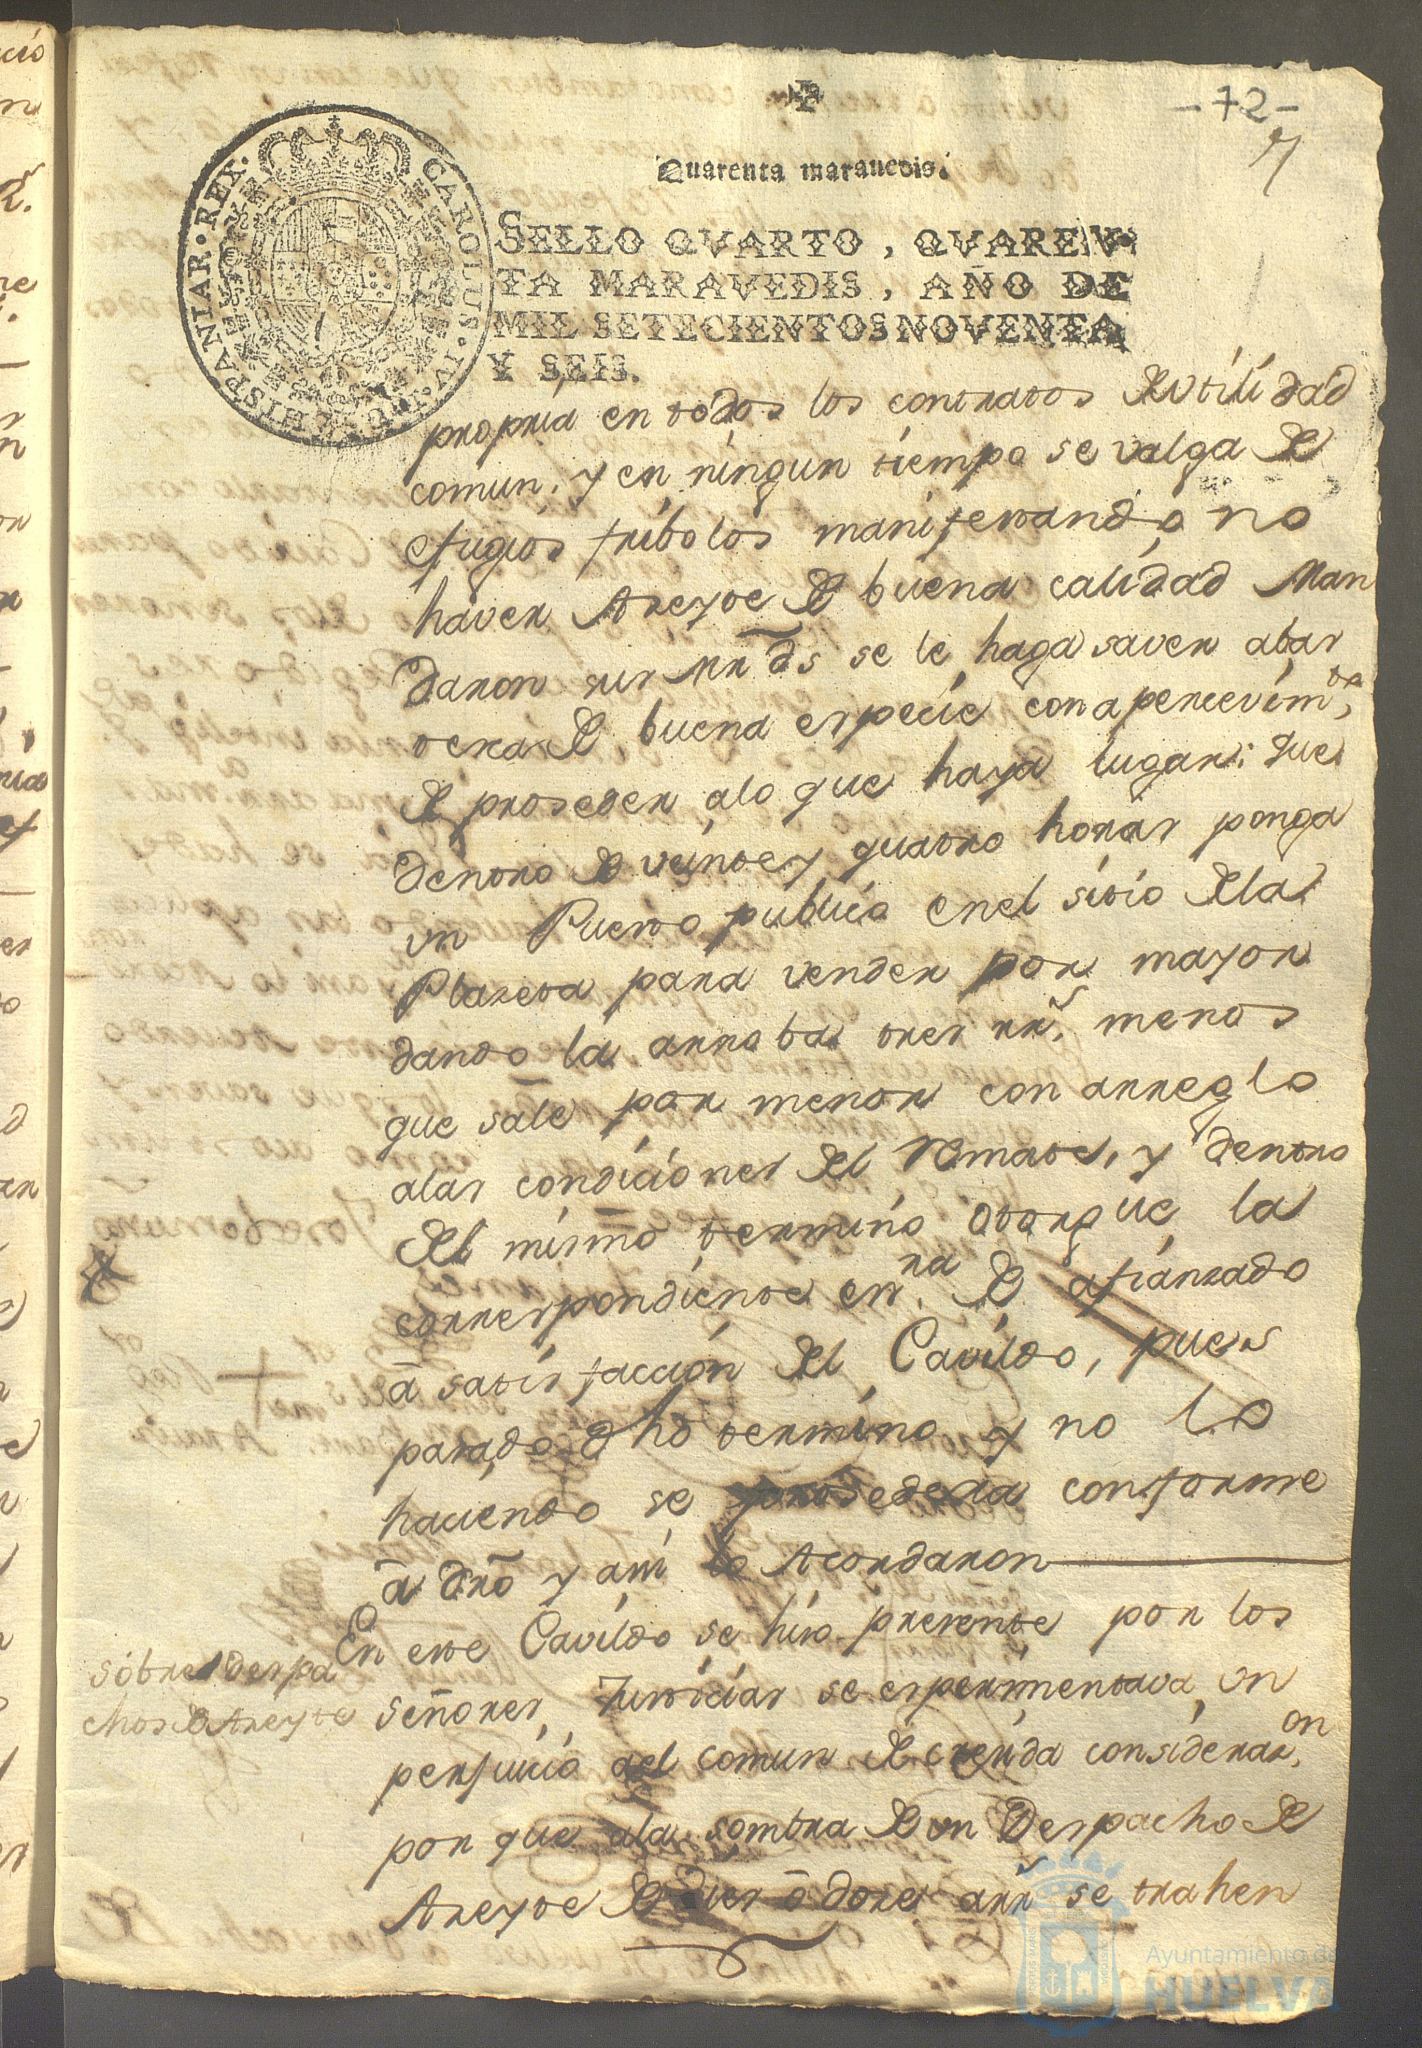 -72-
7
Quarenta maravedis.
CAROLUS · IV · D · G · HISPANIAR · REX ·
SELLO QVARTO, QVAREN-
TA MARAVEDIS, AÑO DE
MIL SETECIENTOS NOVENTA
Y SEIS.
propria en todos los contratos de utilidad
comun, y en ningun tiempo se valga de
efugios fribolos manifestando no
haver Azeyte de buena calidad Man
daron sus mrds se le haga saver abas
tezca de buena especie con apercevimto,
de proseder a lo que haya lugar: que
dentro de veinte y quatro horas ponga
un Puesto publico en el sitio de la
Plazeta para vender por mayor
dando la arroba tres rrs. menos
que sale por menor con arreglo
a las condiciones del Remate, y dentro
del mismo termino otorgue la
correspondiente essra. de afianzado
a satisfaccion del Cavildo, pues
pasado dho termino y no lo
haciendo se prosedera conforme
a dro y asi lo Acordaron
sobre despa
chos de Azeyte
En este Cavildo se hizo presente por los
señores Justicias se esperimentava un
perjuicio del comun de crecida consideraron.
por que a la sombra de un Despacho de
Azeyte de dies o doze arrs se trahen
Ayuntamiento de
HUELVA